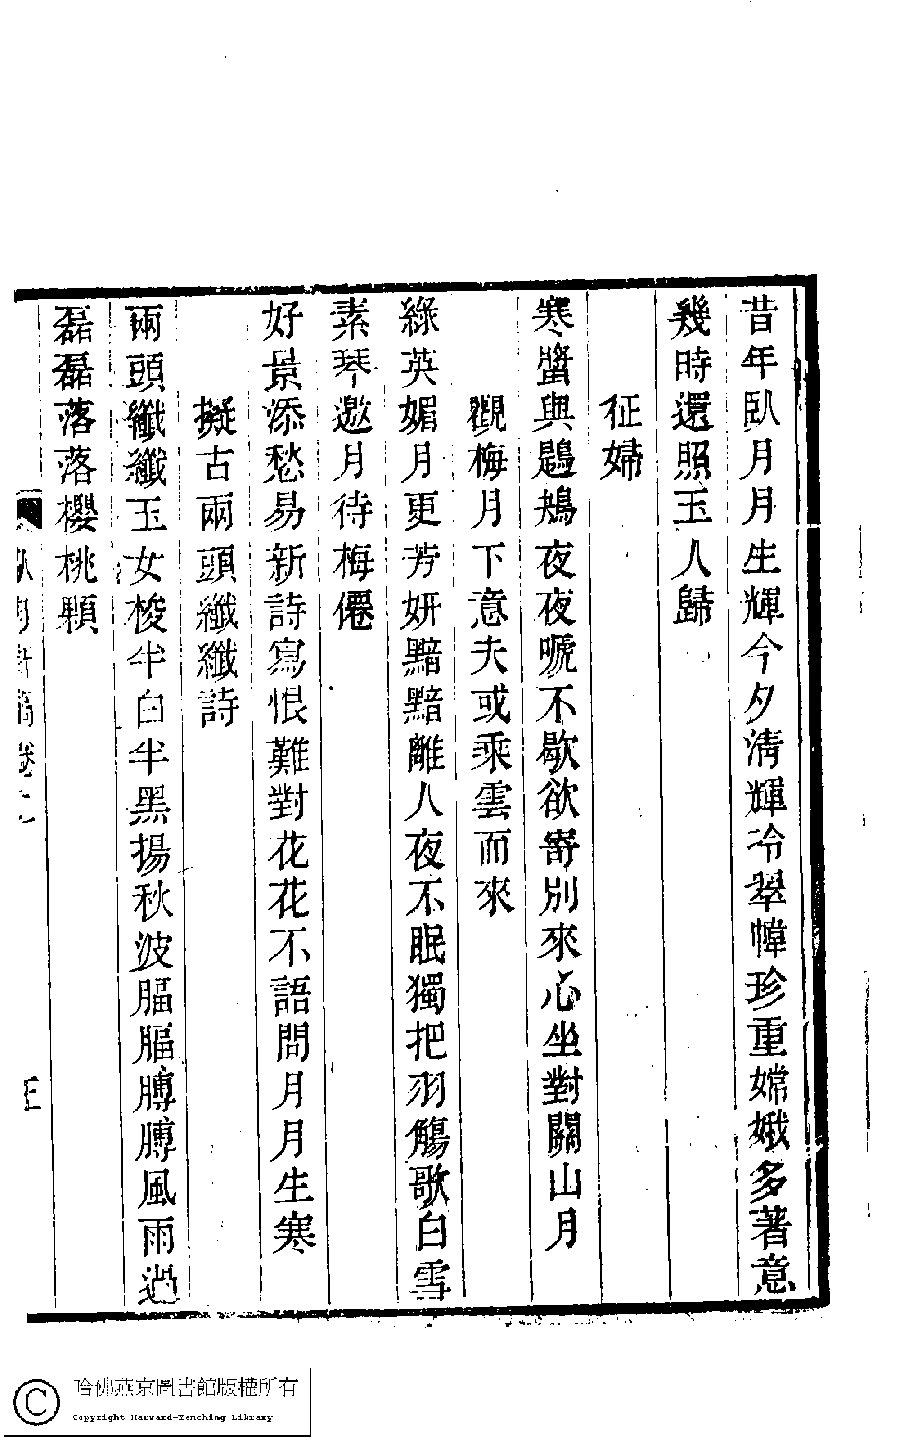 昔年臥月月生輝今夕清輝冷翠幃珍重嫦娥多著意
幾時還照玉人歸
征婦
寒螿與鶗鴂夜夜嗁不歇欲寄別來心坐對關山月
觀梅月下意夫或乘雲而來
綠英媚月更芳妍黯黯離人夜不眠獨把羽觴歌白雪
素琴邀月待梅僊
好景添愁易新詩寫恨難對花花不語問月月生寒
擬古兩頭纖纖詩
兩頭纖纖玉女梭半白半黑揚秋波腷腷膊膊風雨過
磊磊落落櫻桃顆
哈佛燕京圖書館版權所有
Copyright Harvard-Yenching Library